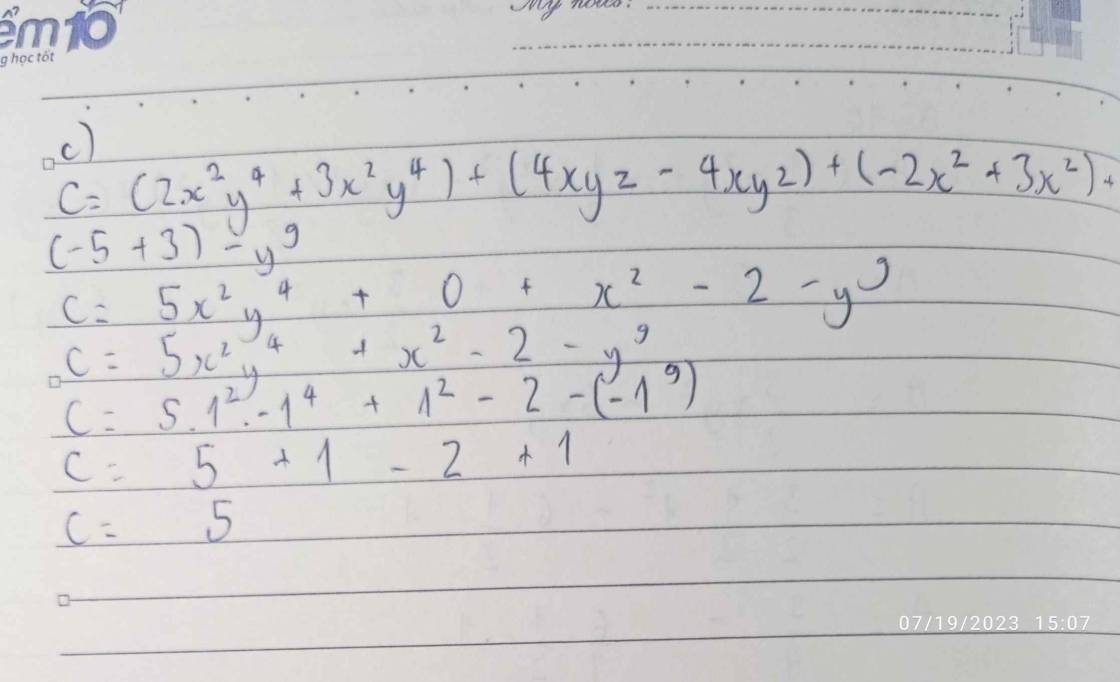 ểm 10
My notes:
g học tốt
c)
C = (2x²y⁴ + 3x²y⁴) + (4xyz - 4xyz) + (-2x² + 3x²) +
(-5 + 3) - y⁹
C = 5x²y⁴ + 0 + x² - 2 - y⁹
C = 5x²y⁴ + x² - 2 - y⁹
C = 5.1².-1⁴ + 1² - 2 - (-1⁹)
C = 5 + 1 - 2 + 1
C = 5
07/19/2023 15:07